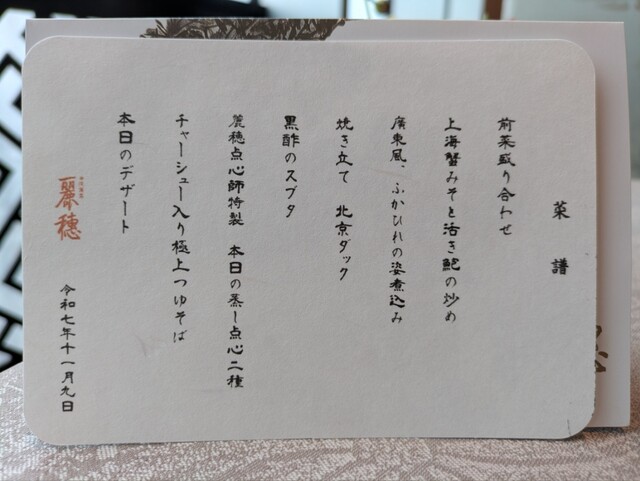 菜譜
前菜盛り合わせ
上海蟹みそと活き鮑の炒め
廣東風、ふかひれの姿煮込み
焼き立て 北京ダック
黒酢のスブタ
麗穂点心師特製 本日の蒸し点心二種
チャーシュー入り極上つゆそば
本日のデザート
麗穂
令和七年十一月九日